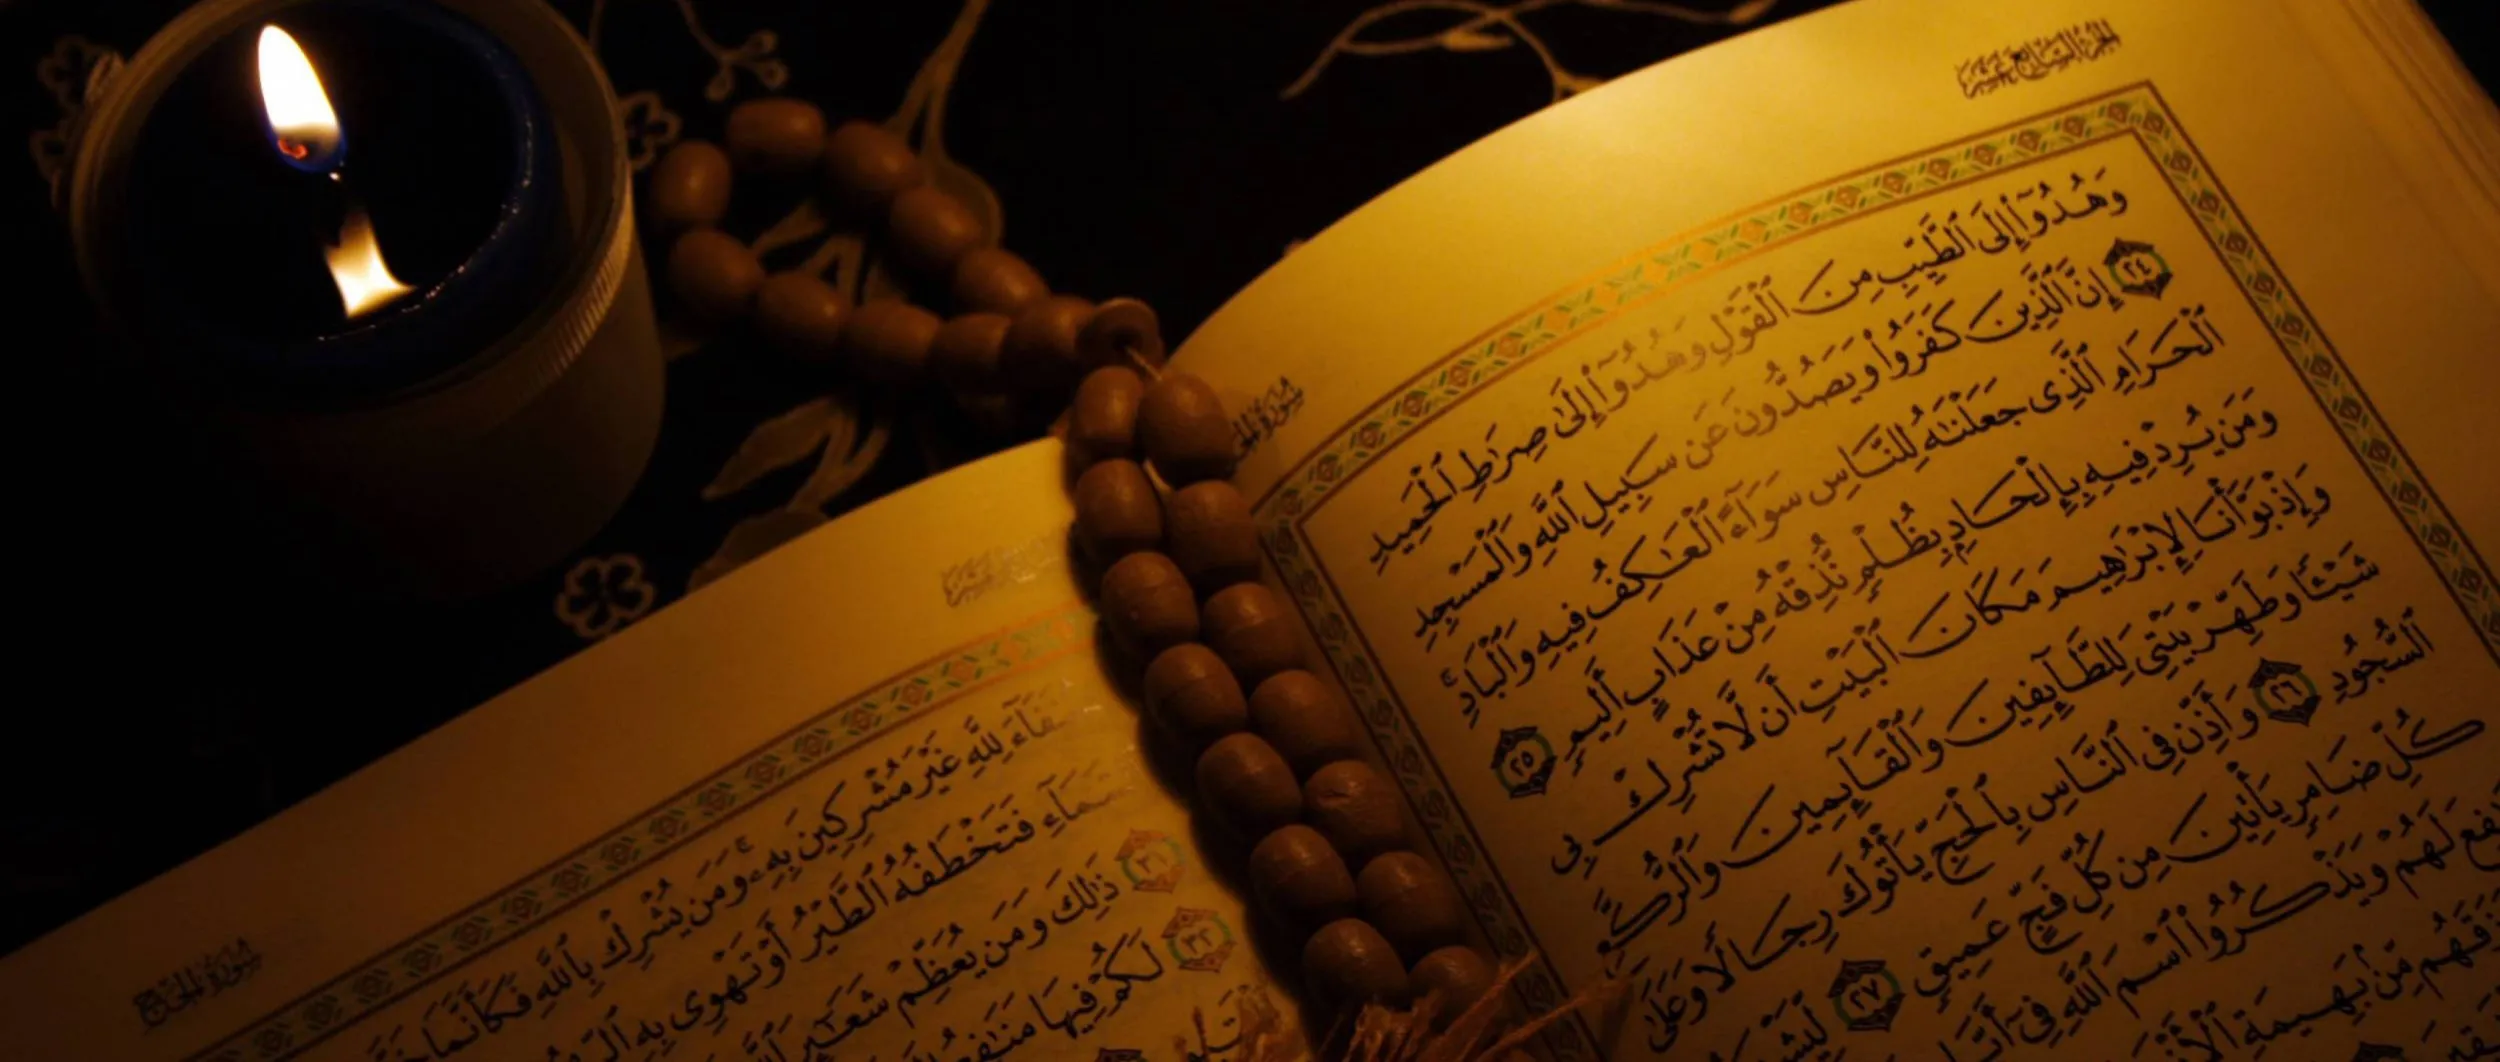 الجزء السابع عشر
سورة الحج
وَهُدُوٓا۟ إِلَى ٱلطَّيِّبِ مِنَ ٱلْقَوْلِ وَهُدُوٓا۟ إِلَىٰ صِرَٰطِ ٱلْحَمِيدِ
٢٤ إِنَّ ٱلَّذِينَ كَفَرُوا۟ وَيَصُدُّونَ عَن سَبِيلِ ٱللَّهِ وَٱلْمَسْجِدِ
ٱلْحَرَامِ ٱلَّذِى جَعَلْنَٰهُ لِلنَّاسِ سَوَآءً ٱلْعَٰكِفُ فِيهِ وَٱلْبَادِ ۚ
وَمَن يُرِدْ فِيهِ بِإِلْحَادٍۭ بِظُلْمٍ نُّذِقْهُ مِنْ عَذَابٍ أَلِيمٍ ٢٥
وَإِذْ بَوَّأْنَا لِإِبْرَٰهِيمَ مَكَانَ ٱلْبَيْتِ أَن لَّا تُشْرِكْ بِى
شَيْـًٔا وَطَهِّرْ بَيْتِىَ لِلطَّآئِفِينَ وَٱلْقَآئِمِينَ وَٱلرُّكَّعِ
ٱلسُّجُودِ ٢٦ وَأَذِّن فِى ٱلنَّاسِ بِٱلْحَجِّ يَأْتُوكَ رِجَالًا وَعَلَىٰ
كُلِّ ضَامِرٍ يَأْتِينَ مِن كُلِّ فَجٍّ عَمِيقٍ ٢٧
لَهُمْ وَيَذْكُرُوا۟ ٱسْمَ ٱللَّهِ فِىٓ
مِّنۢ بَهِيمَةِ
سورة الحج
لِلَّهِ غَيْرَ مُشْرِكِينَ بِهِۦ ۚ وَمَن يُشْرِكْ بِٱللَّهِ فَكَأَنَّمَا
فَتَخْطَفُهُ ٱلطَّيْرُ أَوْ تَهْوِى بِهِ
٣١ ذَٰلِكَ وَمَن يُعَظِّمْ شَعَٰٓئِرَ
٣٢ لَكُمْ فِيهَا مَنَٰفِعُ